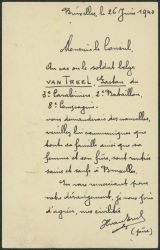 Bruxelles, le 26 Juin 1940
Monsieur le Consul,
Au cas où le soldat belge
VAN TREEL, Gaston du
3e Carabiniers, 2e Bataillon,
8e Compagnie
vous demanderait des nouvelles,
veuillez lui communiquer que
toute sa famille ainsi que sa
femme et son fils, sont rentrés
sains et saufs à Bruxelles.
En vous remerciant pour
votre dérangement, je vous prie
d'agréer, mes civilités
(père)